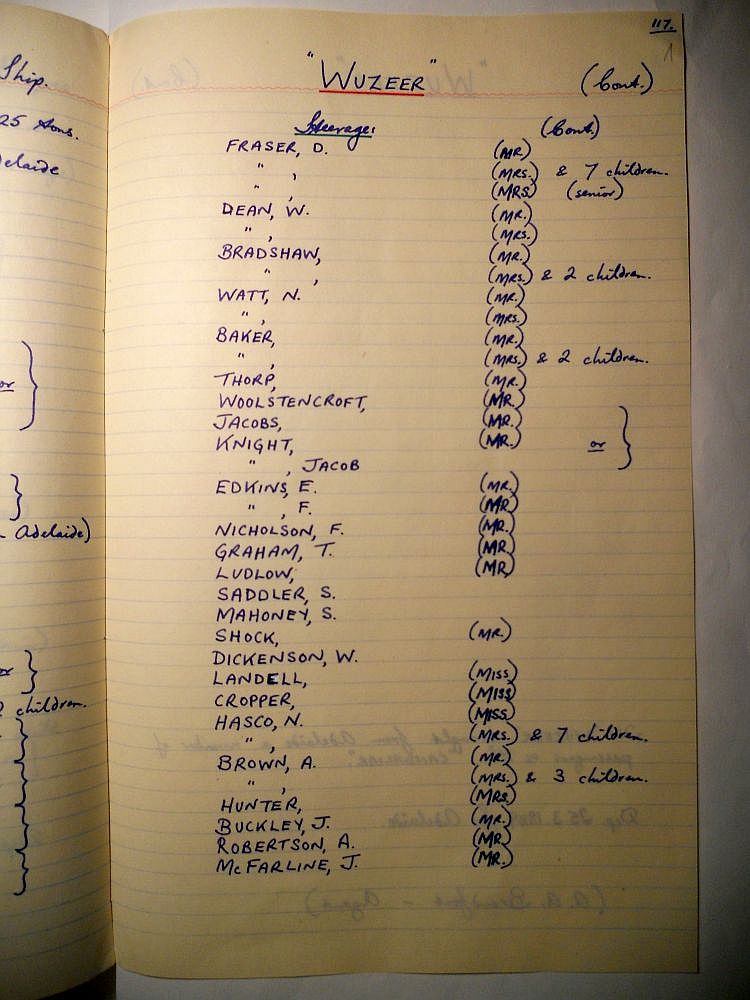 Ship.
25 Tons.
Adelaide
or
- Adelaide)
or
children.
117.
1
"WUZEER" (Cont.)
Steerage: (Cont.)
FRASER, D. (MR.)
" , (MRS.) & 7 children.
" , (MRS) (senior)
DEAN, W. (MR.)
" , (MRS.)
BRADSHAW, (MR.)
" , (MRS.) & 2 children.
WATT, N. (MR.)
" , (MRS.)
BAKER, (MR.)
" , (MRS.) & 2 children.
THORP, (MR.)
WOOLSTENCROFT, (MR.)
JACOBS, (MR.)
KNIGHT, (MR.) or
" , JACOB
EDKINS, E. (MR.)
" , F. (MR)
NICHOLSON, F. (MR.)
GRAHAM, T. (MR)
LUDLOW, (MR)
SADDLER, S.
MAHONEY, S.
SHOCK, (MR.)
DICKENSON, W.
LANDELL, (MISS)
CROPPER, (MISS)
HASCO, N. (MISS)
" , (MRS.) & 7 children.
BROWN, A. (MR.)
" , (MRS.) & 3 children.
HUNTER, (MRS.)
BUCKLEY, J. (MR.)
ROBERTSON, A. (MR)
McFARLINE, J. (MR.)